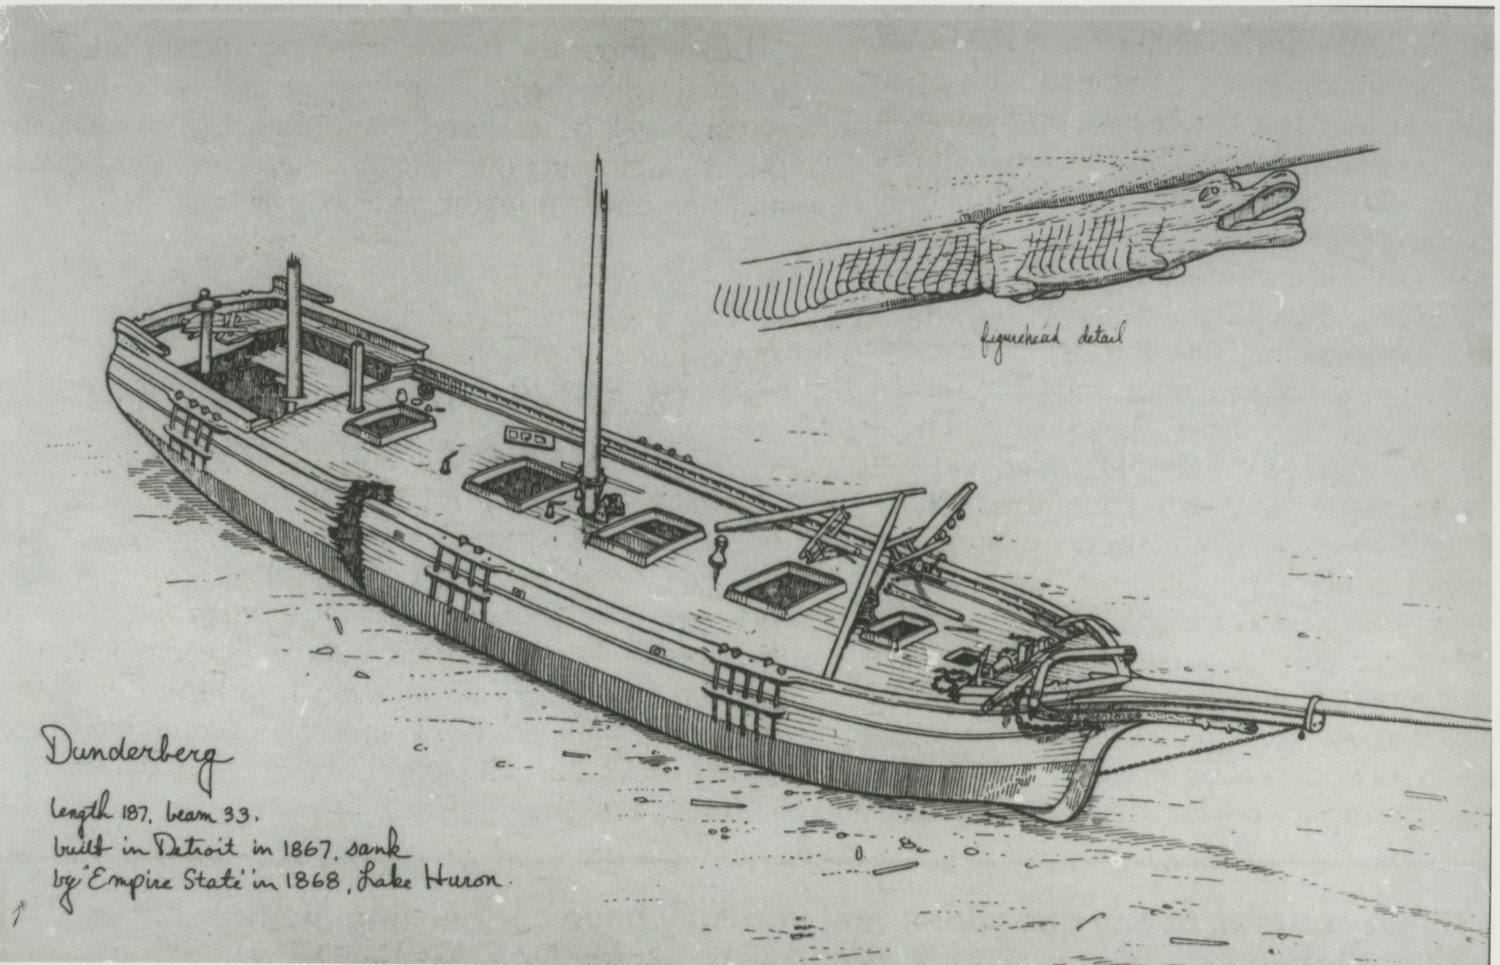 figurehead detail
Dunderberg
length 187, beam 33.
built in Detroit in 1867, sank
by "Empire State" in 1868, Lake Huron.